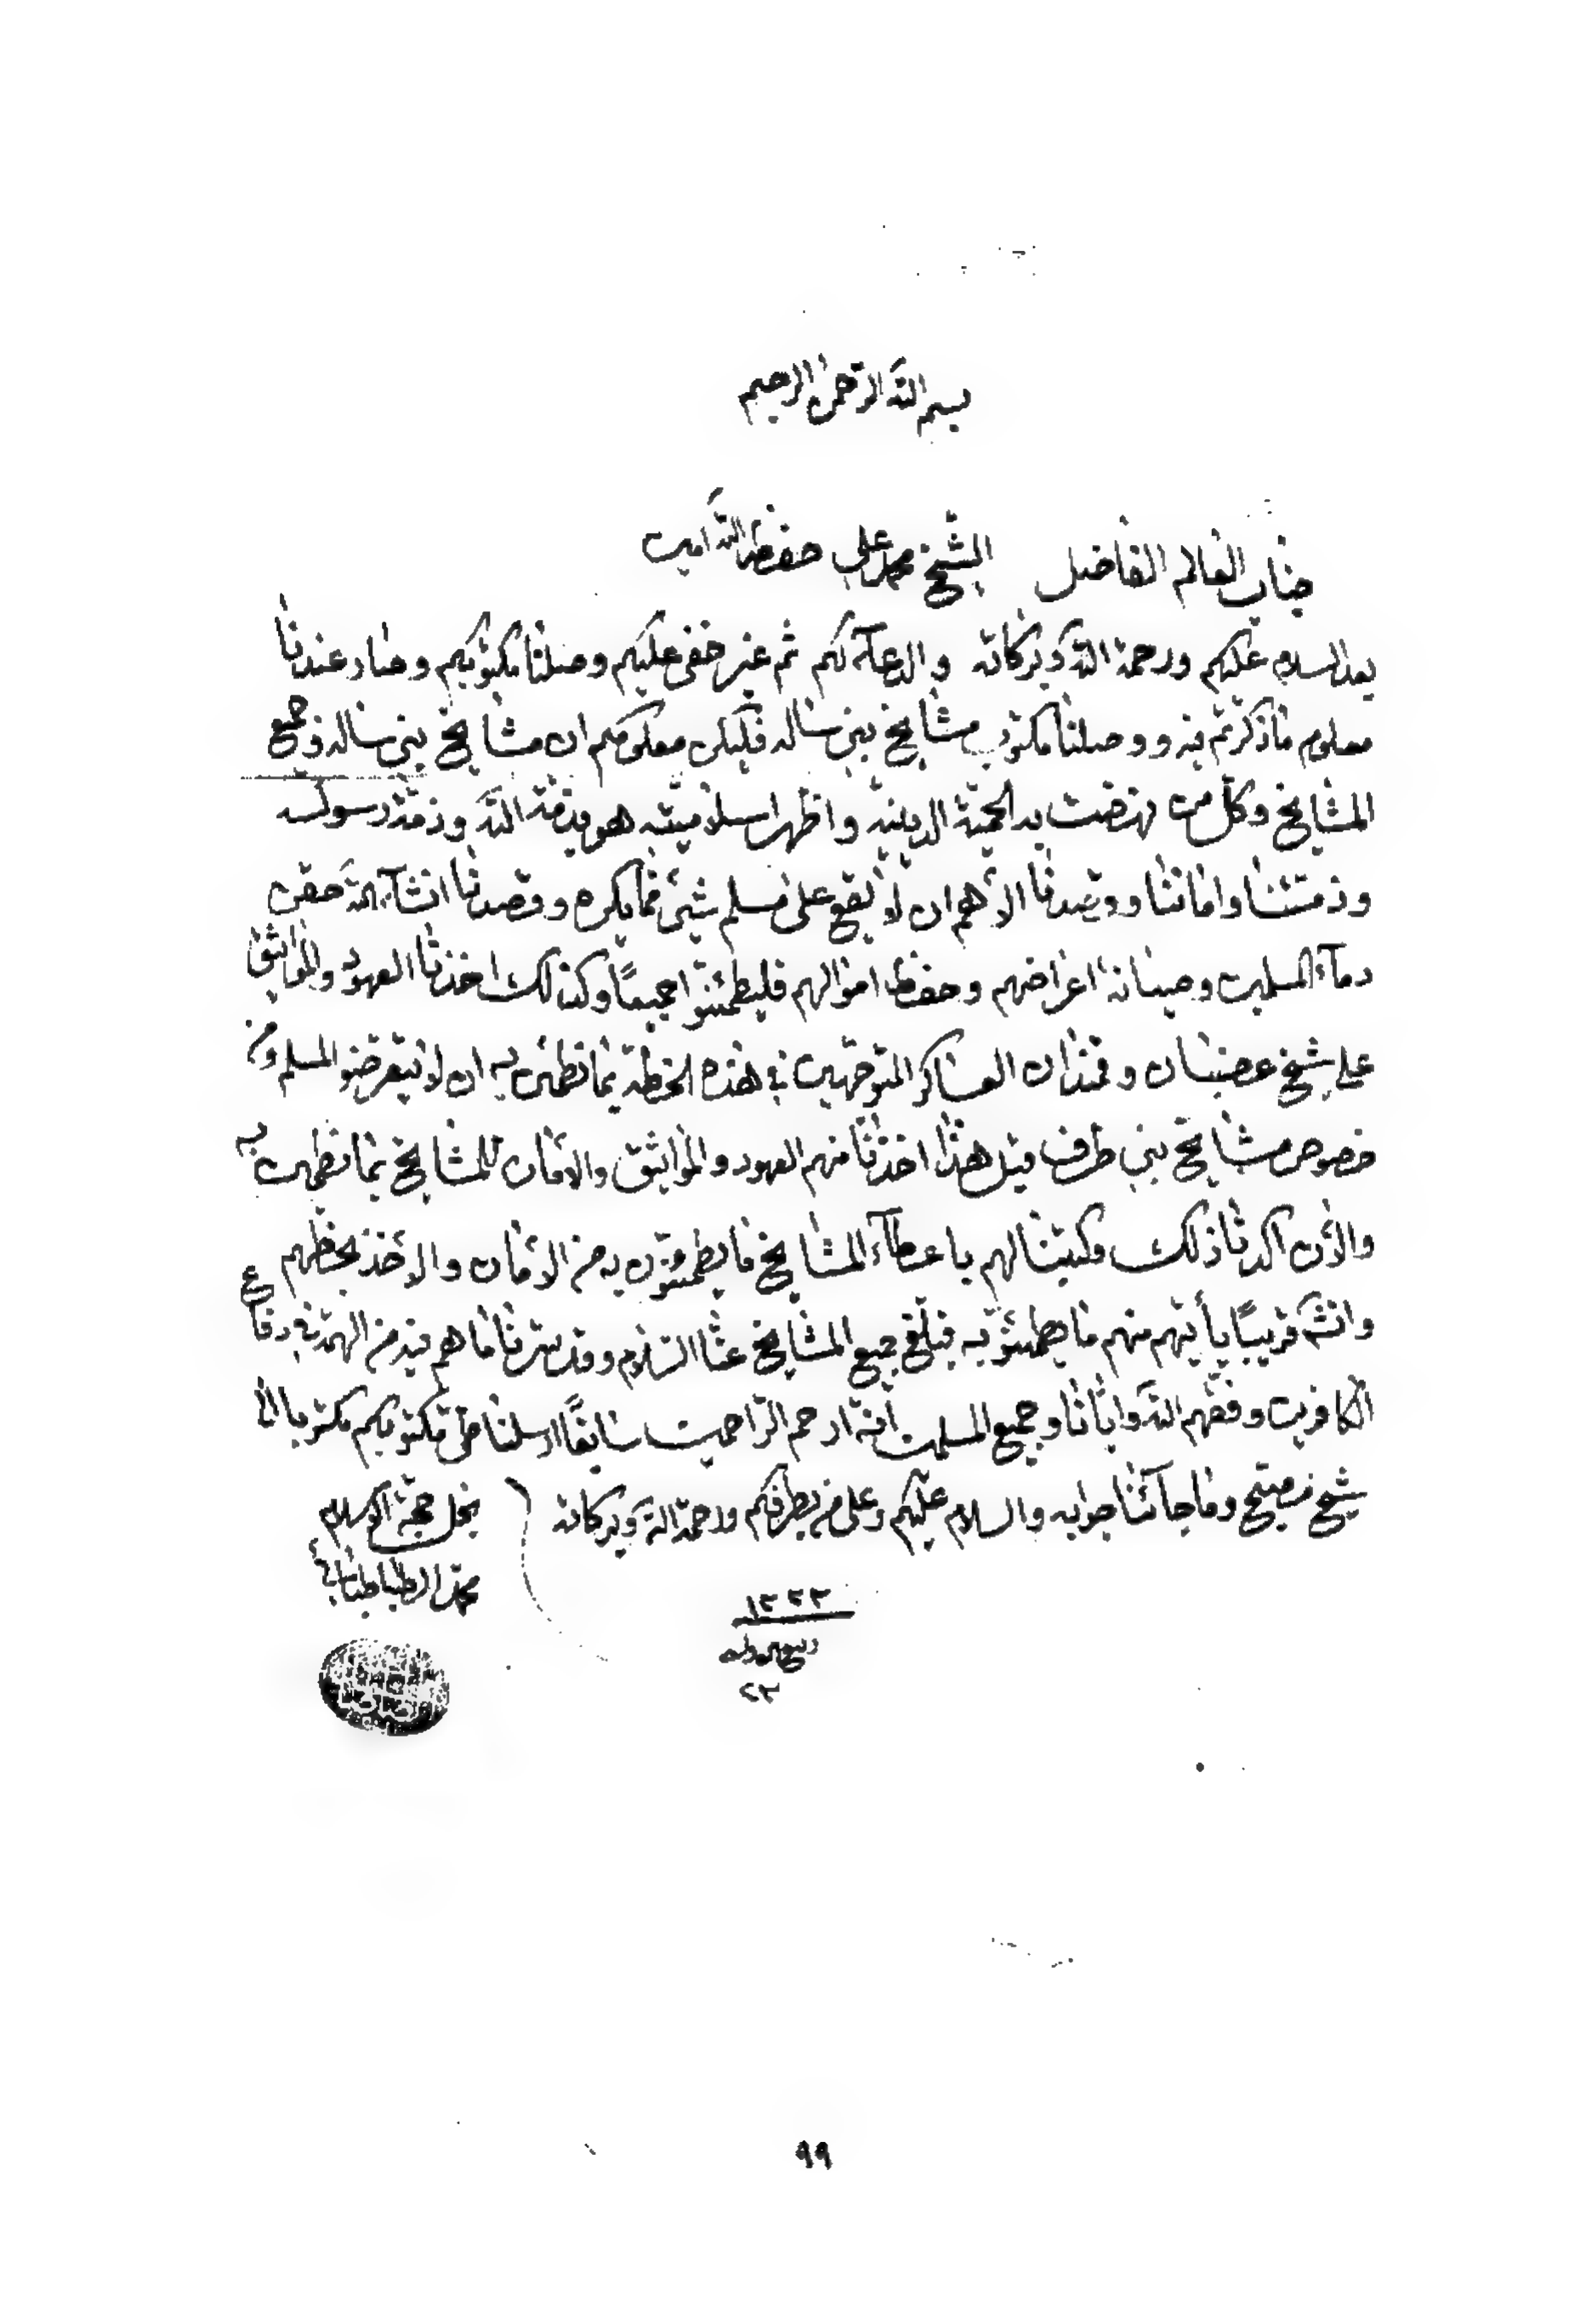 بسم الله الرحمن الرحيم
جناب العالم الفاضل الشيخ محمد علي حفظه الله امين
بعد السلام عليكم ورحمة الله وبركاته والدعآء لكم ثم غير خفى عليكم وصلنا مكتوبكم وصار عندنا
معلوم ماذكرتم فيه ووصلنا مكتوب مشايخ بنى ساله فليكن معلومكم ان مشايخ بنى ساله وجميع
المشايخ وكل من نهضت به الحمية الدينية واظهر اسلاميته هو بذمة الله وذمة رسوله
وذمتنا واماننا وقصدنا الأهم ان لا يقع على مسلم شيئ مما يكره وقصدنا انشآء الله حقن
دمآء المسلمين وصيانة اعراضهم وحفظ اموالهم فليطمئنوا جميعًا وكذلك اخذنا العهود والمواثيق
على شيخ غضبان وقمندان العساكر المتوجهين في هذه الخطة بما نطمئن به ان لا يتعرضوا لمسلم ومن
خصوص مشايخ بني طرف قبل هذا اخذنا منهم العهود والمواثيق والأمان للمشايخ بما نطمئن به
والأن اكدنا ذلك وكتبنا لهم باعطآء المشايخ ما يطمئنون به من الأمان والأخذ بحظهم
وانشـ قريبًا يأتيهم منهم ما يطمئنوا به فبلغ جميع المشايخ عنا السلام وقد سرنا ما هم فيه من الهمة في دفاع
الكافرين وفقهم الله وايانا وجميع المسلمين انه ارحم الراحمين سابقًا ارسلنا طى مكتوبكم مكتوبا الى
شيخ مصبح وما جائنا جوابه والسلام عليكم وعلى من بطرفكم ورحمة الله وبركاته
نجل حجة الاسلام
محمد الطباطبائي
١٣٣٣
ربيع
٢٣
٩٩